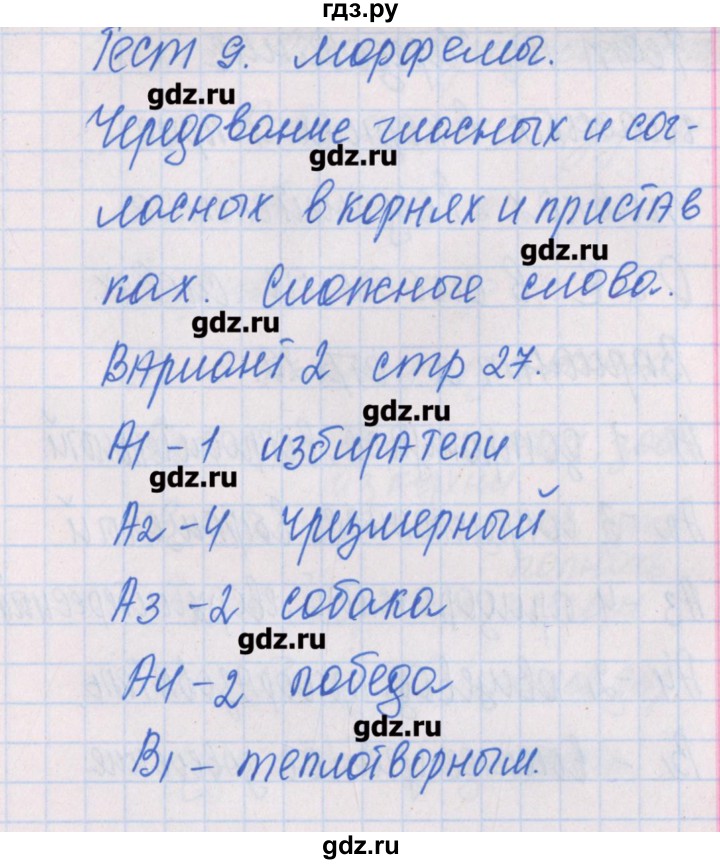 гдз.ру
Тест 9. Морфемы.
gdz.ru
Чередование гласных и сог-
gdz.ru
ласных в корнях и пристав
gdz.ru
ках. Сложные слова.
gdz.ru
Вариант 2 стр 27.
gdz.ru
А1 – 1 избиратели
gdz.ru
А2 – 4 чрезмерный
А3 – 2 собака
gdz.ru
А4 – 2 победа
gdz.ru
В1 – теплотворным.
gdz.ru